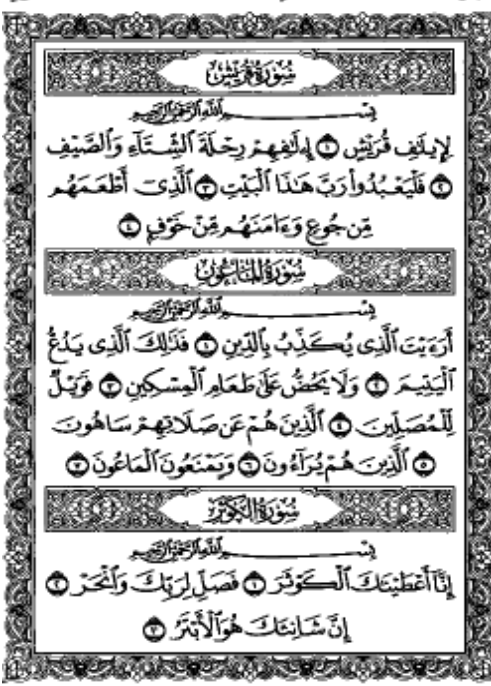 سُورَةُ قُرَيْشٍ
بِسْمِ اللَّهِ الرَّحْمَٰنِ الرَّحِيمِ
لِإِيلَٰفِ قُرَيْشٍ ١ إِۦلَٰفِهِمْ رِحْلَةَ ٱلشِّتَآءِ وَٱلصَّيْفِ
٢ فَلْيَعْبُدُوا۟ رَبَّ هَٰذَا ٱلْبَيْتِ ٣ ٱلَّذِىٓ أَطْعَمَهُم
مِّن جُوعٍ وَءَامَنَهُم مِّنْ خَوْفٍۭ ٤
سُورَةُ المَاعُونِ
بِسْمِ اللَّهِ الرَّحْمَٰنِ الرَّحِيمِ
أَرَءَيْتَ ٱلَّذِى يُكَذِّبُ بِٱلدِّينِ ١ فَذَٰلِكَ ٱلَّذِى يَدُعُّ
ٱلْيَتِيمَ ٢ وَلَا يَحُضُّ عَلَىٰ طَعَامِ ٱلْمِسْكِينِ ٣ فَوَيْلٌ
لِّلْمُصَلِّينَ ٤ ٱلَّذِينَ هُمْ عَن صَلَاتِهِمْ سَاهُونَ
٥ ٱلَّذِينَ هُمْ يُرَآءُونَ ٦ وَيَمْنَعُونَ ٱلْمَاعُونَ ٧
سُورَةُ الكَوْثَرِ
بِسْمِ اللَّهِ الرَّحْمَٰنِ الرَّحِيمِ
إِنَّآ أَعْطَيْنَٰكَ ٱلْكَوْثَرَ ١ فَصَلِّ لِرَبِّكَ وَٱنْحَرْ ٢
إِنَّ شَانِئَكَ هُوَ ٱلْأَبْتَرُ ٣